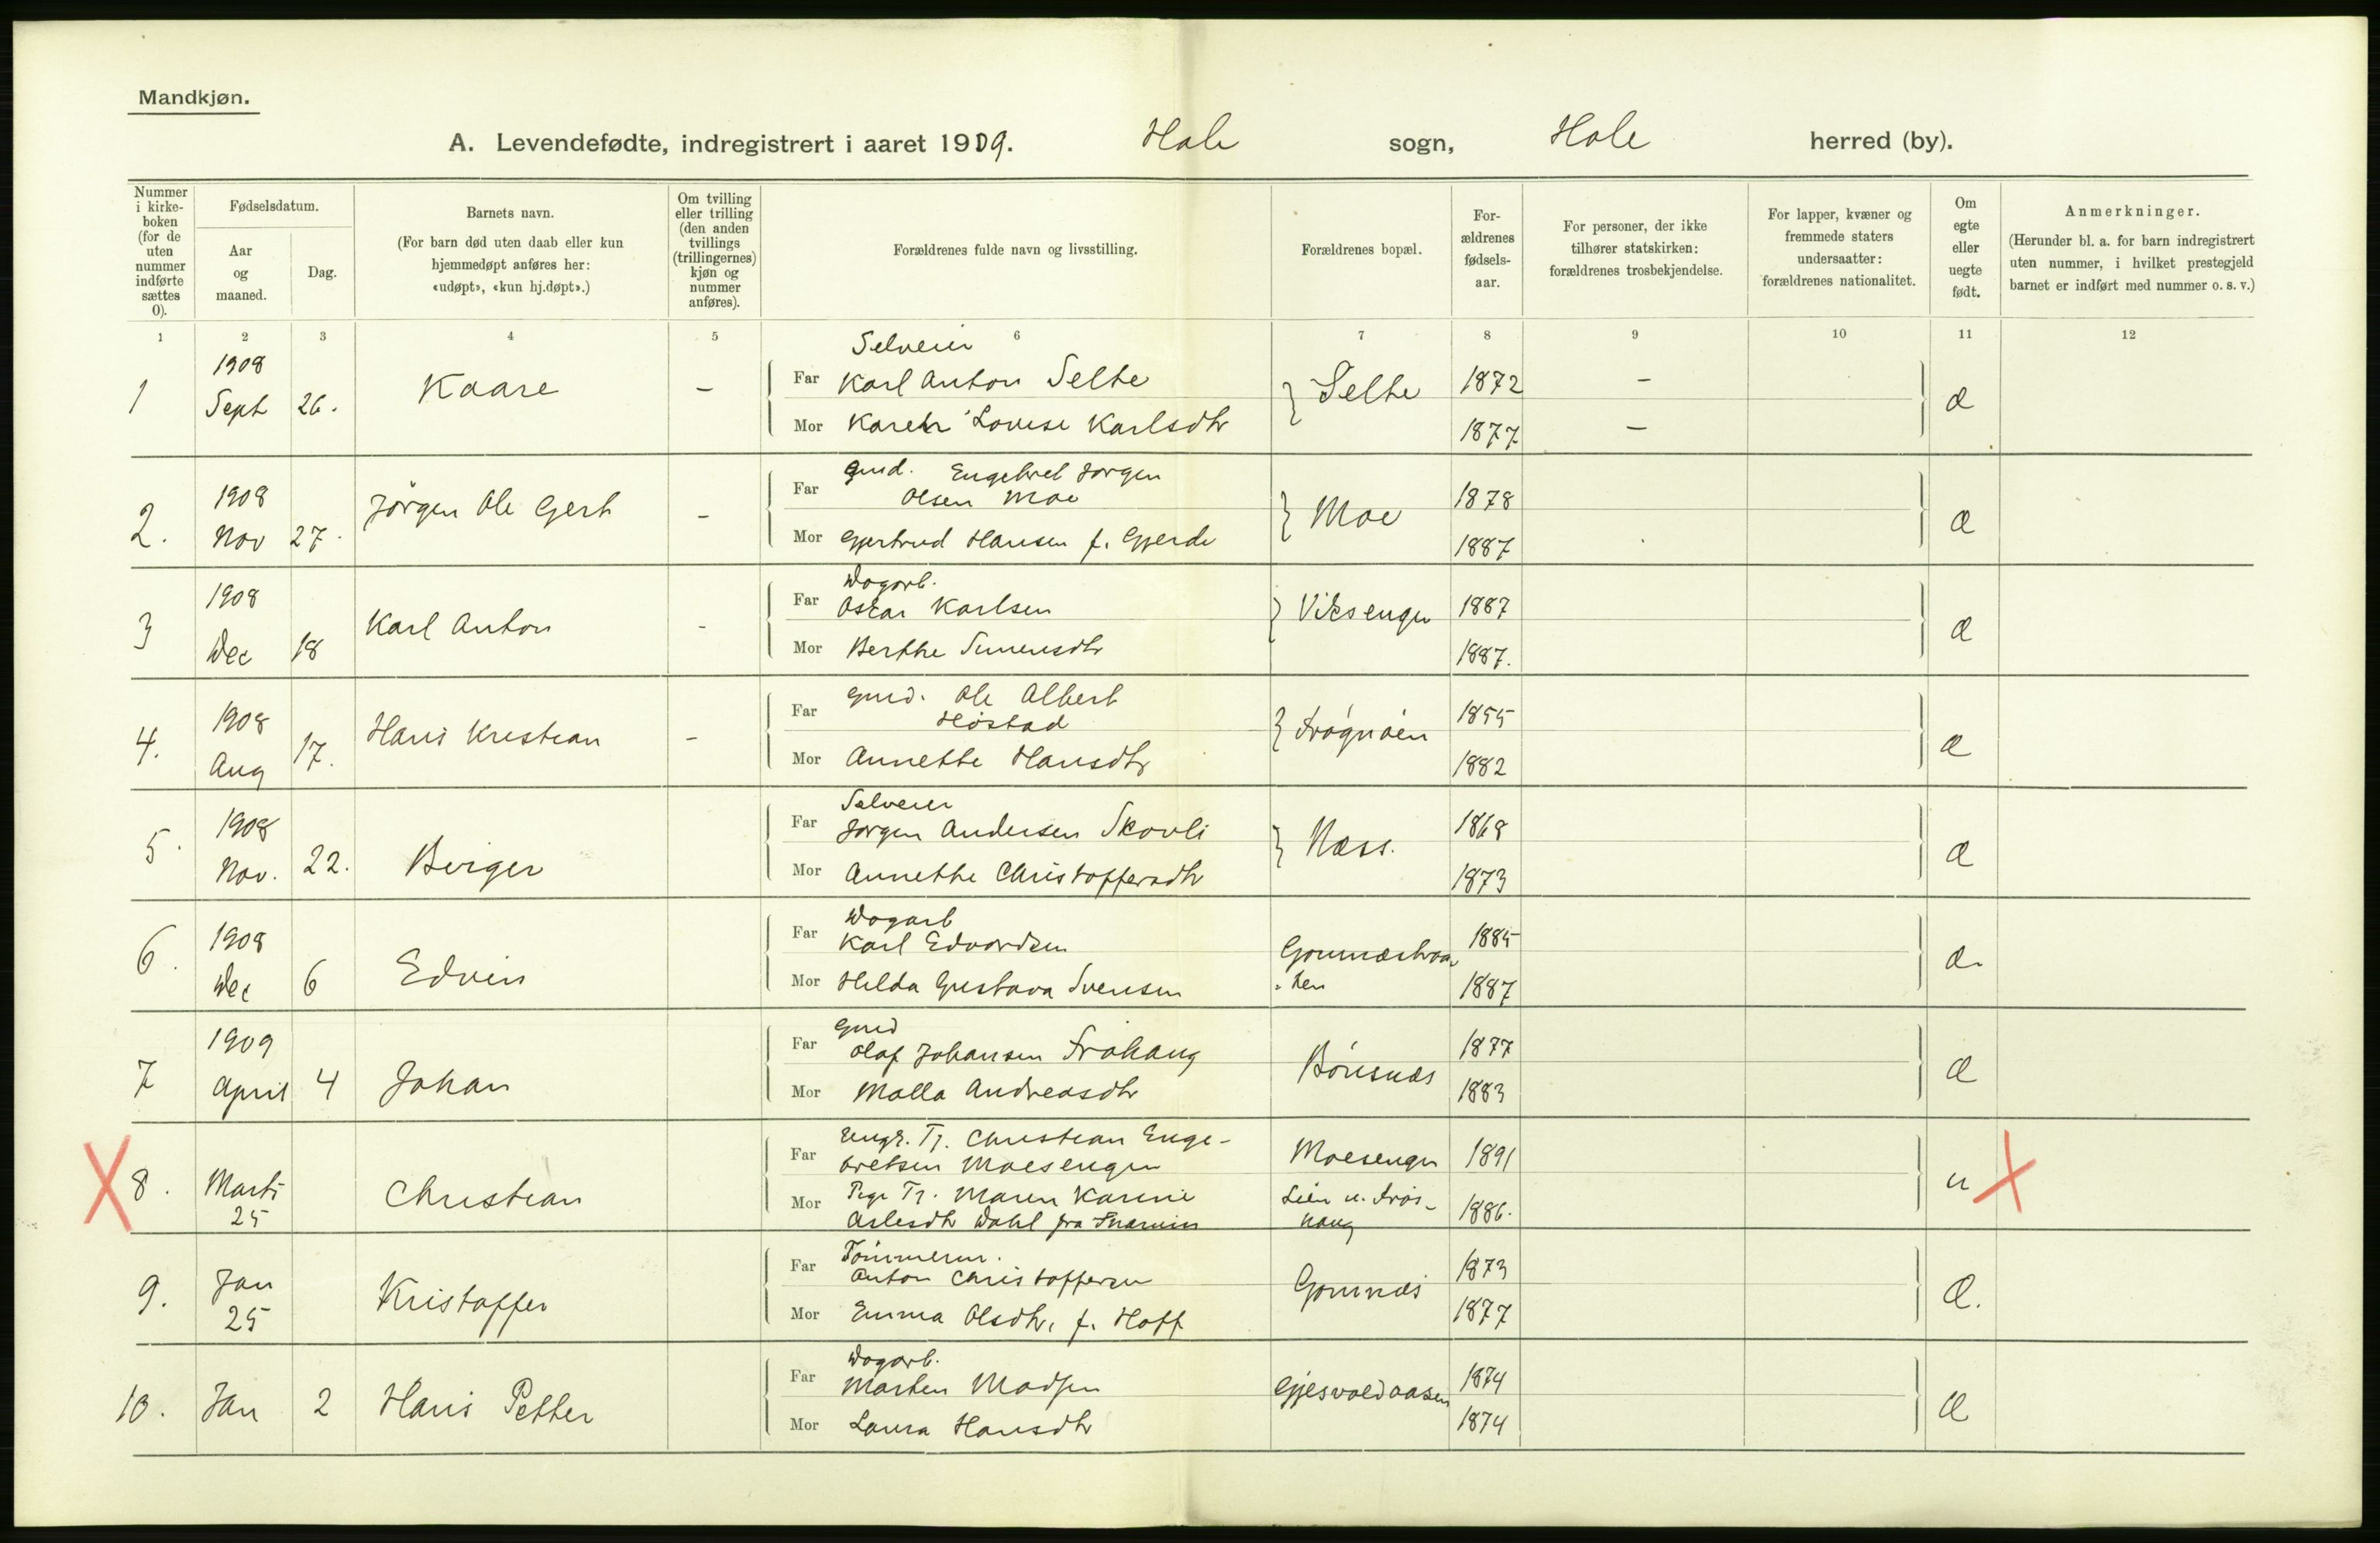 Mandkjøn.
A. Levendefødte, indregistrert i aaret 1909. Hole sogn, Hole herred (by).
Nummer i kirke-boken (for de uten nummer indførte sættes 0).
Fødselsdatum.
Aar og maaned.
Dag.
Barnets navn.
(For barn død uten daab eller kun hjemmedøpt anføres her: «udøpt», «kun hj.døpt».)
Om tvilling eller trilling (den anden tvillings (trillingernes) kjøn og nummer anføres).
Forældrenes fulde navn og livsstilling.
Forældrenes bopæl.
For-ældrenes fødsels-aar.
For personer, der ikke tilhører statskirken: forældrenes trosbekjendelse.
For lapper, kvæner og fremmede staters undersaatter: forældrenes nationalitet.
Om egte eller uegte født.
Anmerkninger.
(Herunder bl. a. for barn indregistrert uten nummer, i hvilket prestegjeld barnet er indført med nummer o. s. v.)
1 2 3 4 5 6 7 8 9 10 11 12
1 1908 Sept 26. Kaare –
Selveier
Far Karl Anton Selte } Selte 1872 – æ
Mor Karen Lovise Karlsdtr 1877 –
2. 1908 Nov 27. Jörgen Ole Gert –
Far Gmd. Engebret Jorgen
Olsen Moe } Moe 1878 æ
Mor Gjertrud Hansen f. Gjerde 1887
3 1908 Dec 18 Karl Anton -
Dagarb.
Far Oskar Karlsen } Viksengen 1887 æ
Mor Berthe Simensdtr 1887.
4. 1908 Aug 17. Hans Kristian –
Far Gmd. Ole Albert
Høstad } Frøgnøen 1855 æ
Mor Annette Hansdtr 1882
5. 1908 Nov. 22. Birger
Selveier
Far Jørgen Andersen Skovli } Næss. 1868 æ
Mor Annethe Christoffersdtr 1873
6. 1908 Dec 6 Edvin
Dagarb
Far Karl Edvardsen 1885 æ.
Mor Hilda Gustava Svensen 1887
7 1909 April 4 Johan
Gmd
Far Olaf Johansen Frøhaug Bönsnæs 1877 æ
Mor Malla Andreasdtr 1883
X 8. Marts 25 Christian
Far Ungk. Tj. Christian Enge-
bretsen Moesengen Moesengen 1891 u X
Mor Pige Tj. Maren Karine
Aslesdtr Dahl fra 1886.
9. Jan 25 Kristoffer
Tømmerm.
Far Anton Christoffersen Gomnæs 1873 Æ.
Mor Emma Olsdtr. f. Hoff 1877
10. Jan 2 Hans Petter
Dagarb.
Far Marten Madsen Gjesvoldaasen 1874 Æ
Mor Laura Hansdtr 1874